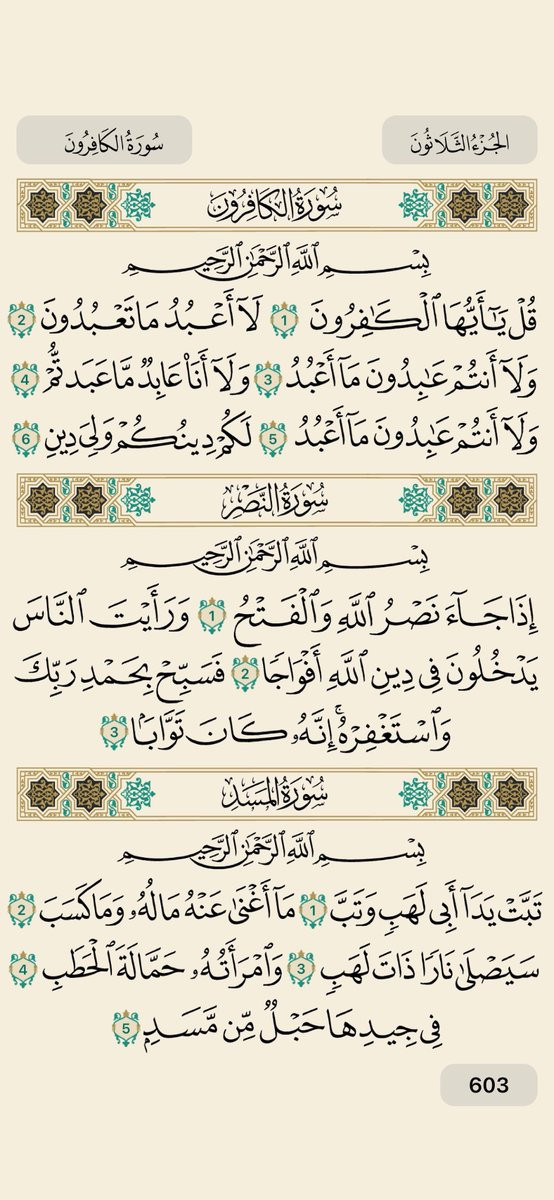 الجُزْءُ الثَّلَاثُونَ
سُورَةُ الكَافِرُونَ
سُورَةُ الكَافِرُونَ
بِسْمِ ٱللَّهِ ٱلرَّحْمَٰنِ ٱلرَّحِيمِ
قُلْ يَٰٓأَيُّهَا ٱلْكَٰفِرُونَ 1 لَآ أَعْبُدُ مَا تَعْبُدُونَ 2
وَلَآ أَنتُمْ عَٰبِدُونَ مَآ أَعْبُدُ 3 وَلَآ أَنَا۠ عَابِدٌ مَّا عَبَدتُّمْ 4
وَلَآ أَنتُمْ عَٰبِدُونَ مَآ أَعْبُدُ 5 لَكُمْ دِينُكُمْ وَلِيَ دِينِ 6
سُورَةُ النَّصْرِ
بِسْمِ ٱللَّهِ ٱلرَّحْمَٰنِ ٱلرَّحِيمِ
إِذَا جَآءَ نَصْرُ ٱللَّهِ وَٱلْفَتْحُ 1 وَرَأَيْتَ ٱلنَّاسَ
يَدْخُلُونَ فِى دِينِ ٱللَّهِ أَفْوَاجًا 2 فَسَبِّحْ بِحَمْدِ رَبِّكَ
وَٱسْتَغْفِرْهُ ۚ إِنَّهُۥ كَانَ تَوَّابًۢا 3
سُورَةُ المَسَدِ
بِسْمِ ٱللَّهِ ٱلرَّحْمَٰنِ ٱلرَّحِيمِ
تَبَّتْ يَدَآ أَبِى لَهَبٍ وَتَبَّ 1 مَآ أَغْنَىٰ عَنْهُ مَالُهُۥ وَمَا كَسَبَ 2
سَيَصْلَىٰ نَارًا ذَاتَ لَهَبٍ 3 وَٱمْرَأَتُهُۥ حَمَّالَةَ ٱلْحَطَبِ 4
فِى جِيدِهَا حَبْلٌ مِّن مَّسَدٍۭ 5
603